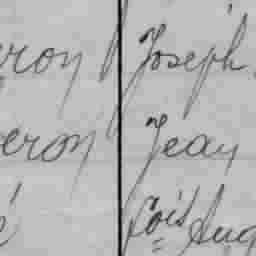 roy Joseph
eron Jean
Cois Aug